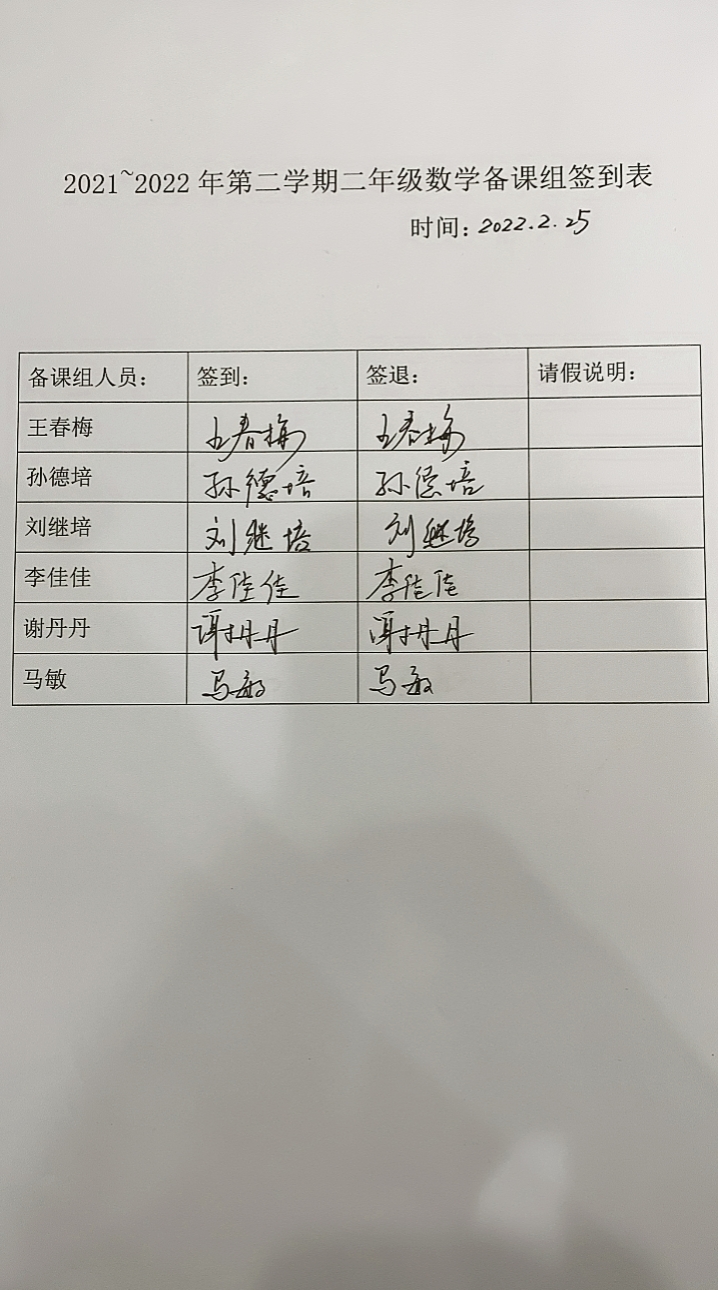 2021~2022 年第二学期二年级数学备课组签到表
时间：2022.2.25
备课组人员： 签到： 签退： 请假说明：
王春梅 王春梅 王春梅
孙德培 孙德培 孙德培
刘继培 刘继培 刘继培
李佳佳 李佳佳 李佳佳
谢丹丹 谢丹丹 谢丹丹
马敏 马敏 马敏